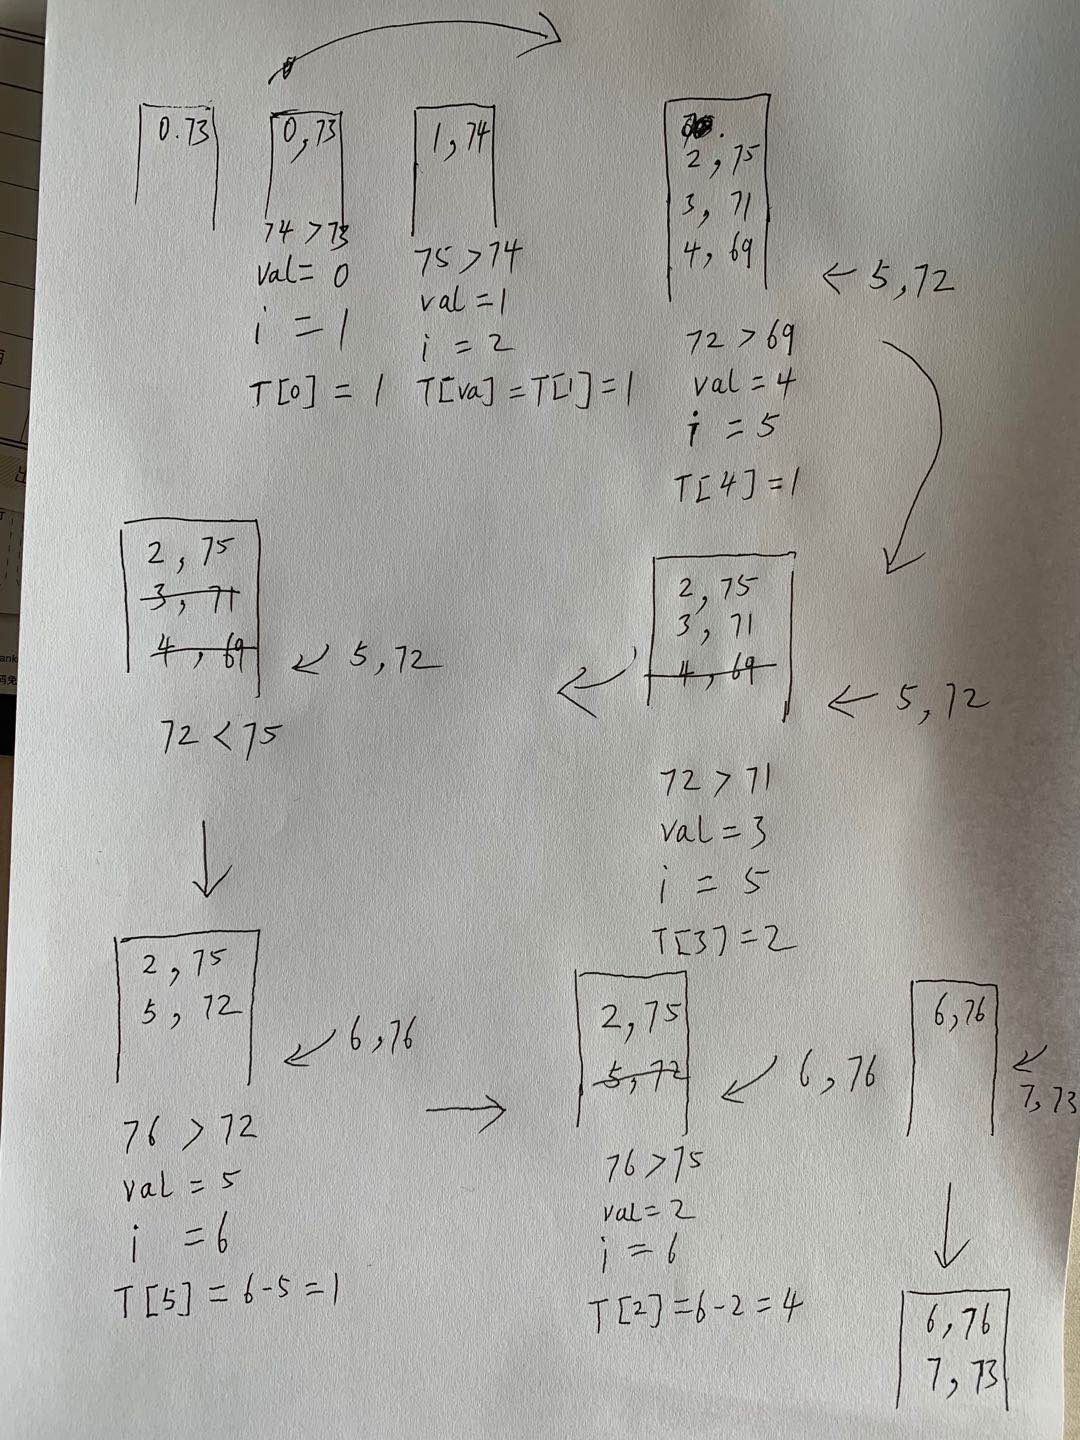 0.73
0,73
74 >73
val= 0
i = 1
T[0] = 1
1,74
75 >74
val =1
i = 2
T[va] =T[1]=1
2,75
3, 71
4, 69
← 5,72
72 > 69
val = 4
i = 5
T[4]=1
2,75
3, 71
4,69
← 5,72
72 > 71
val = 3
i = 5
T[3]=2
2,75
3, 71
4,69
↙ 5,72
72 < 75
2,75
5, 72
↙ 6,76
76 > 72
val = 5
i =6
T[5] = 6-5 =1
2,75
5,72
↙ 6,76
76 >75
val= 2
i = 6
T[2] =6-2=4
6,76
7,73
6,76
7,73